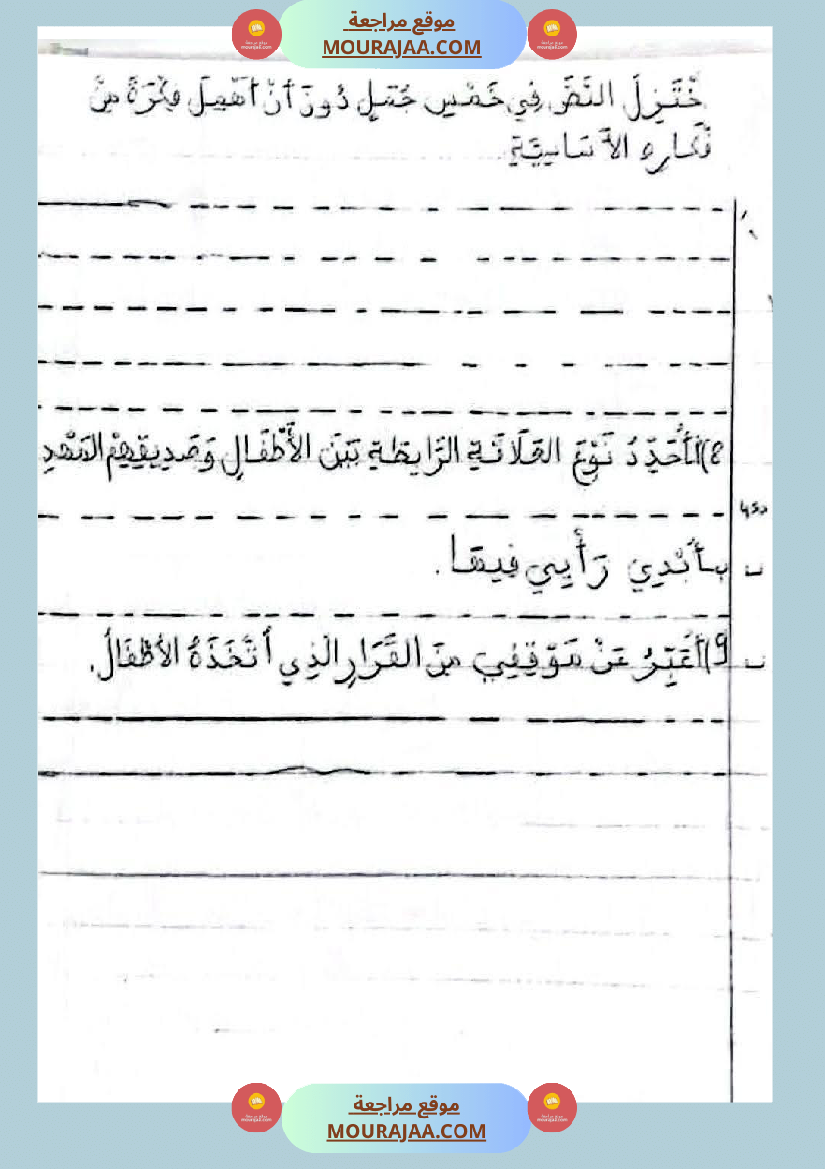 موقع مراجعة
MOURAJAA.COM
خْتَزِلُ النَّصَّ فِي خَمْسِ جُمَلٍ دُونَ أَنْ أُهْمِلَ فِكْرَةً مِنْ
فْكَارِهِ الأَسَاسِيَّةِ
8) أ أُحَدِّدُ نَوْعَ العَلَاقَةِ الرَّابِطَةِ بَيْنَ الأَطْفَالِ وَصَدِيقِهِمْ
ب أُبْدِي رَأْيِي فِيهَا.
9) أُعَبِّرُ عَنْ مَوْقِفِي مِنَ القَرَارِ الَّذِي اتَّخَذَهُ الأَطْفَالُ.
موقع مراجعة
MOURAJAA.COM